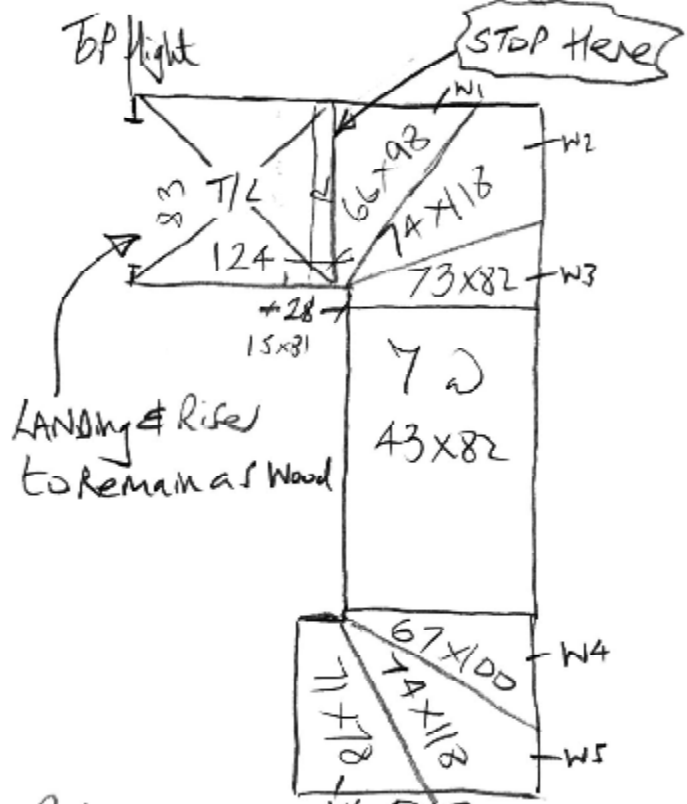 TOP flight
STOP Here
W1
W2
66x98
74x118
83
T/L
R
124
73x82
W3
28
15x31
7 @
43x82
LANDing & Riser
to Remain as Wood
67x100
W4
74x118
W5